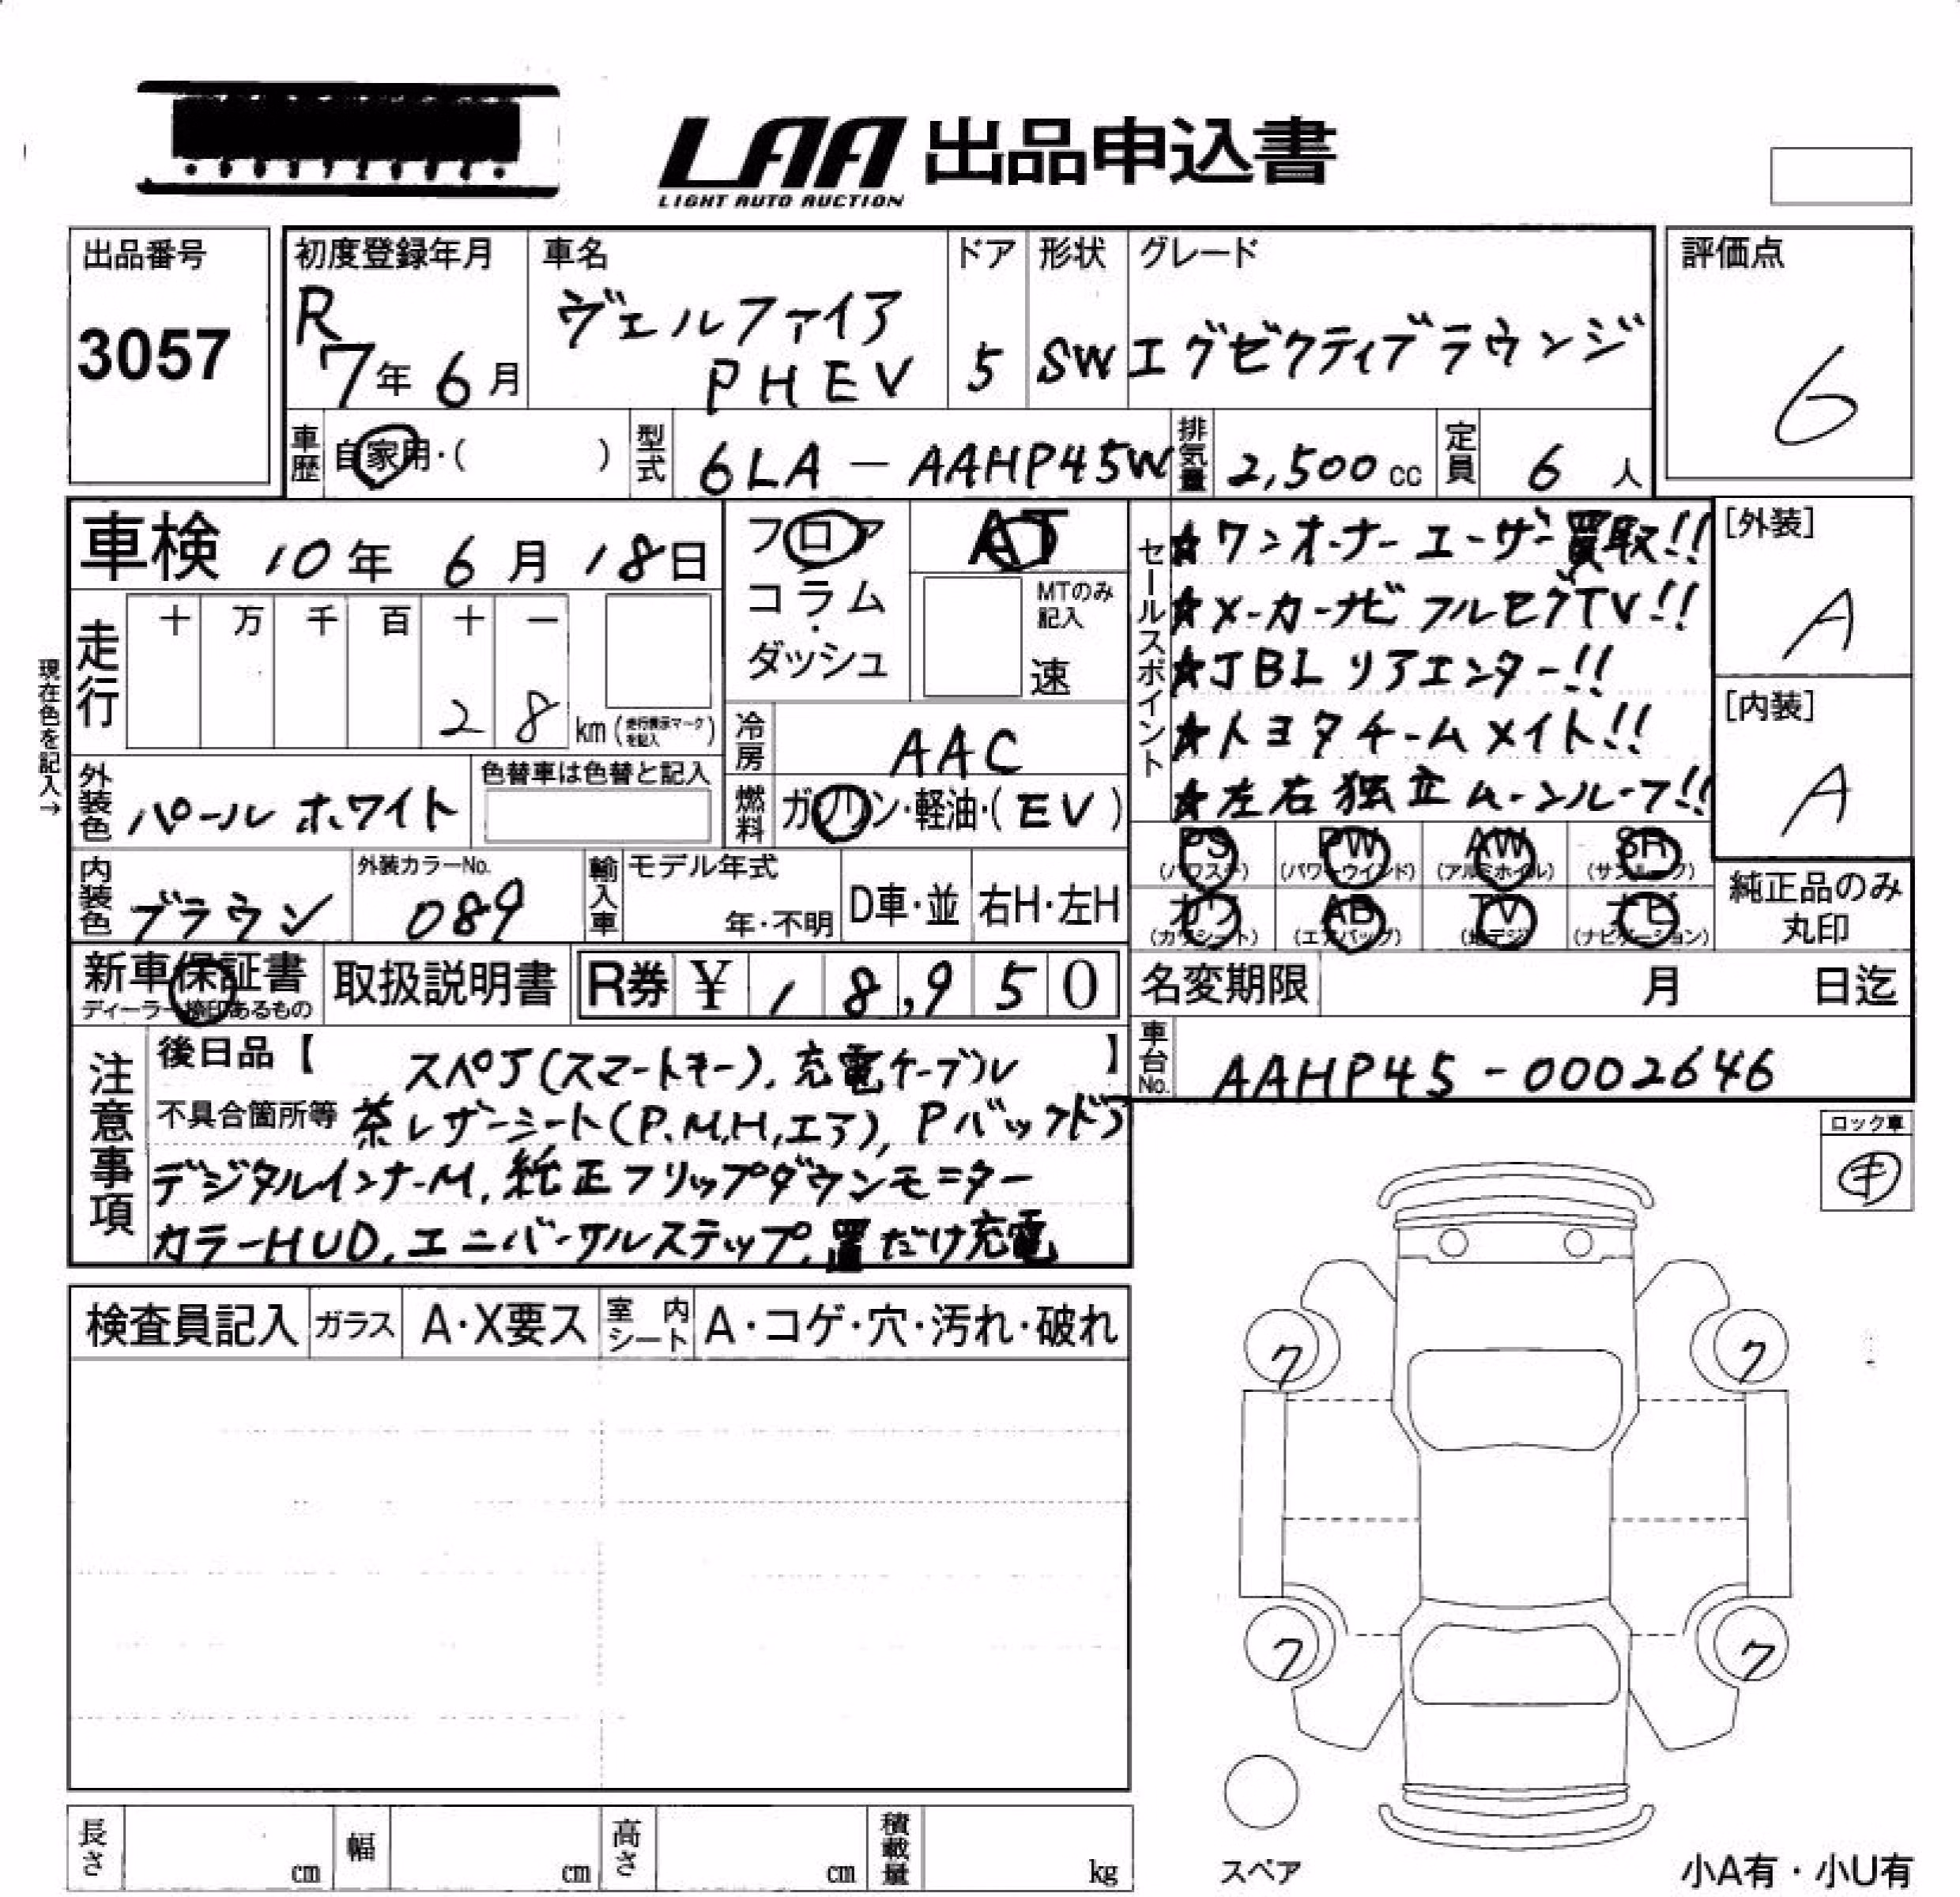 LAA 出品申込書
LIGHT AUTO AUCTION
出品番号
3057
初度登録年月
R
7年 6月
車名
ヴェルファイア
PHEV
ドア
5
形状
SW
グレード
エグゼクティブラウンジ
評価点
6
車歴 自家用・( )
型式 6LA - AAHP45W
排気量 2,500 cc
定員 6 人
車検 10年 6月 18日
フロア
コラム
・
ダッシュ
AT
MTのみ
記入
速
セールスポイント
★ワンオーナーユーザー買取!!
★メーカーナビ フルセグTV!!
★JBL リアエンター!!
★トヨタチームメイト!!
★左右独立ムーンルーフ!!
[外装]
A
[内装]
A
現在色を記入→
走行
十 万 千 百 十 一
2 8 km (走行表示マークを記入)
冷房 AAC
外装色 パールホワイト
色替車は色替と記入
燃料 ガソリン・軽油・(EV)
PS (パワステ) PW (パワーウインド) AW (アルミホイル) SR (サンルーフ)
カワ (カワシート) AB (エアバッグ) TV (地デジ) ナビ (ナビゲーション)
純正品のみ
丸印
内装色 ブラウン
外装カラーNo.
089
輸入車
モデル年式
年・不明
D車・並
右H・左H
新車保証書
ディーラー捺印あるもの
取扱説明書
R券 ¥ 18,950
名変期限 月 日迄
車台No. AAHP45-0002646
注意事項
後日品【 スペア(スマートキー), 充電ケーブル 】
不具合箇所等 茶レザーシート(P.M,H,エア), Pバックドア
デジタルインナーM, 純正フリップダウンモニター
カラーHUD, ユニバーサルステップ, 置だけ充電
ロック車
キ
検査員記入 ガラス A・X要ス 室内シート A・コゲ・穴・汚れ・破れ
7 7
7 7
スペア
小A有・小U有
長さ cm 幅 cm 高さ cm 積載量 kg